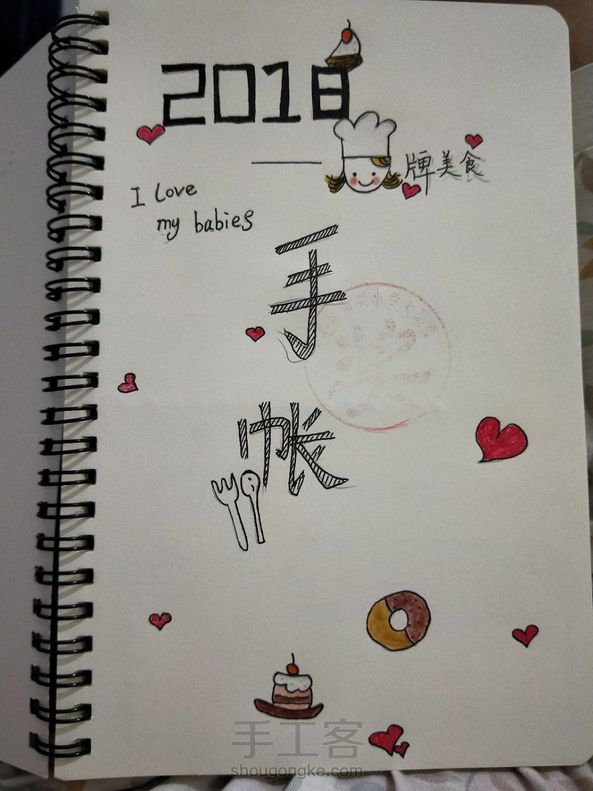 2018
牌美食
I love
my babies
手
帐
手工客
shougongke.com